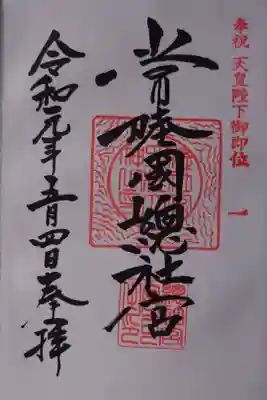 奉祝 天皇陛下御即位
常陸國總社宮
令和元年五月四日奉拝